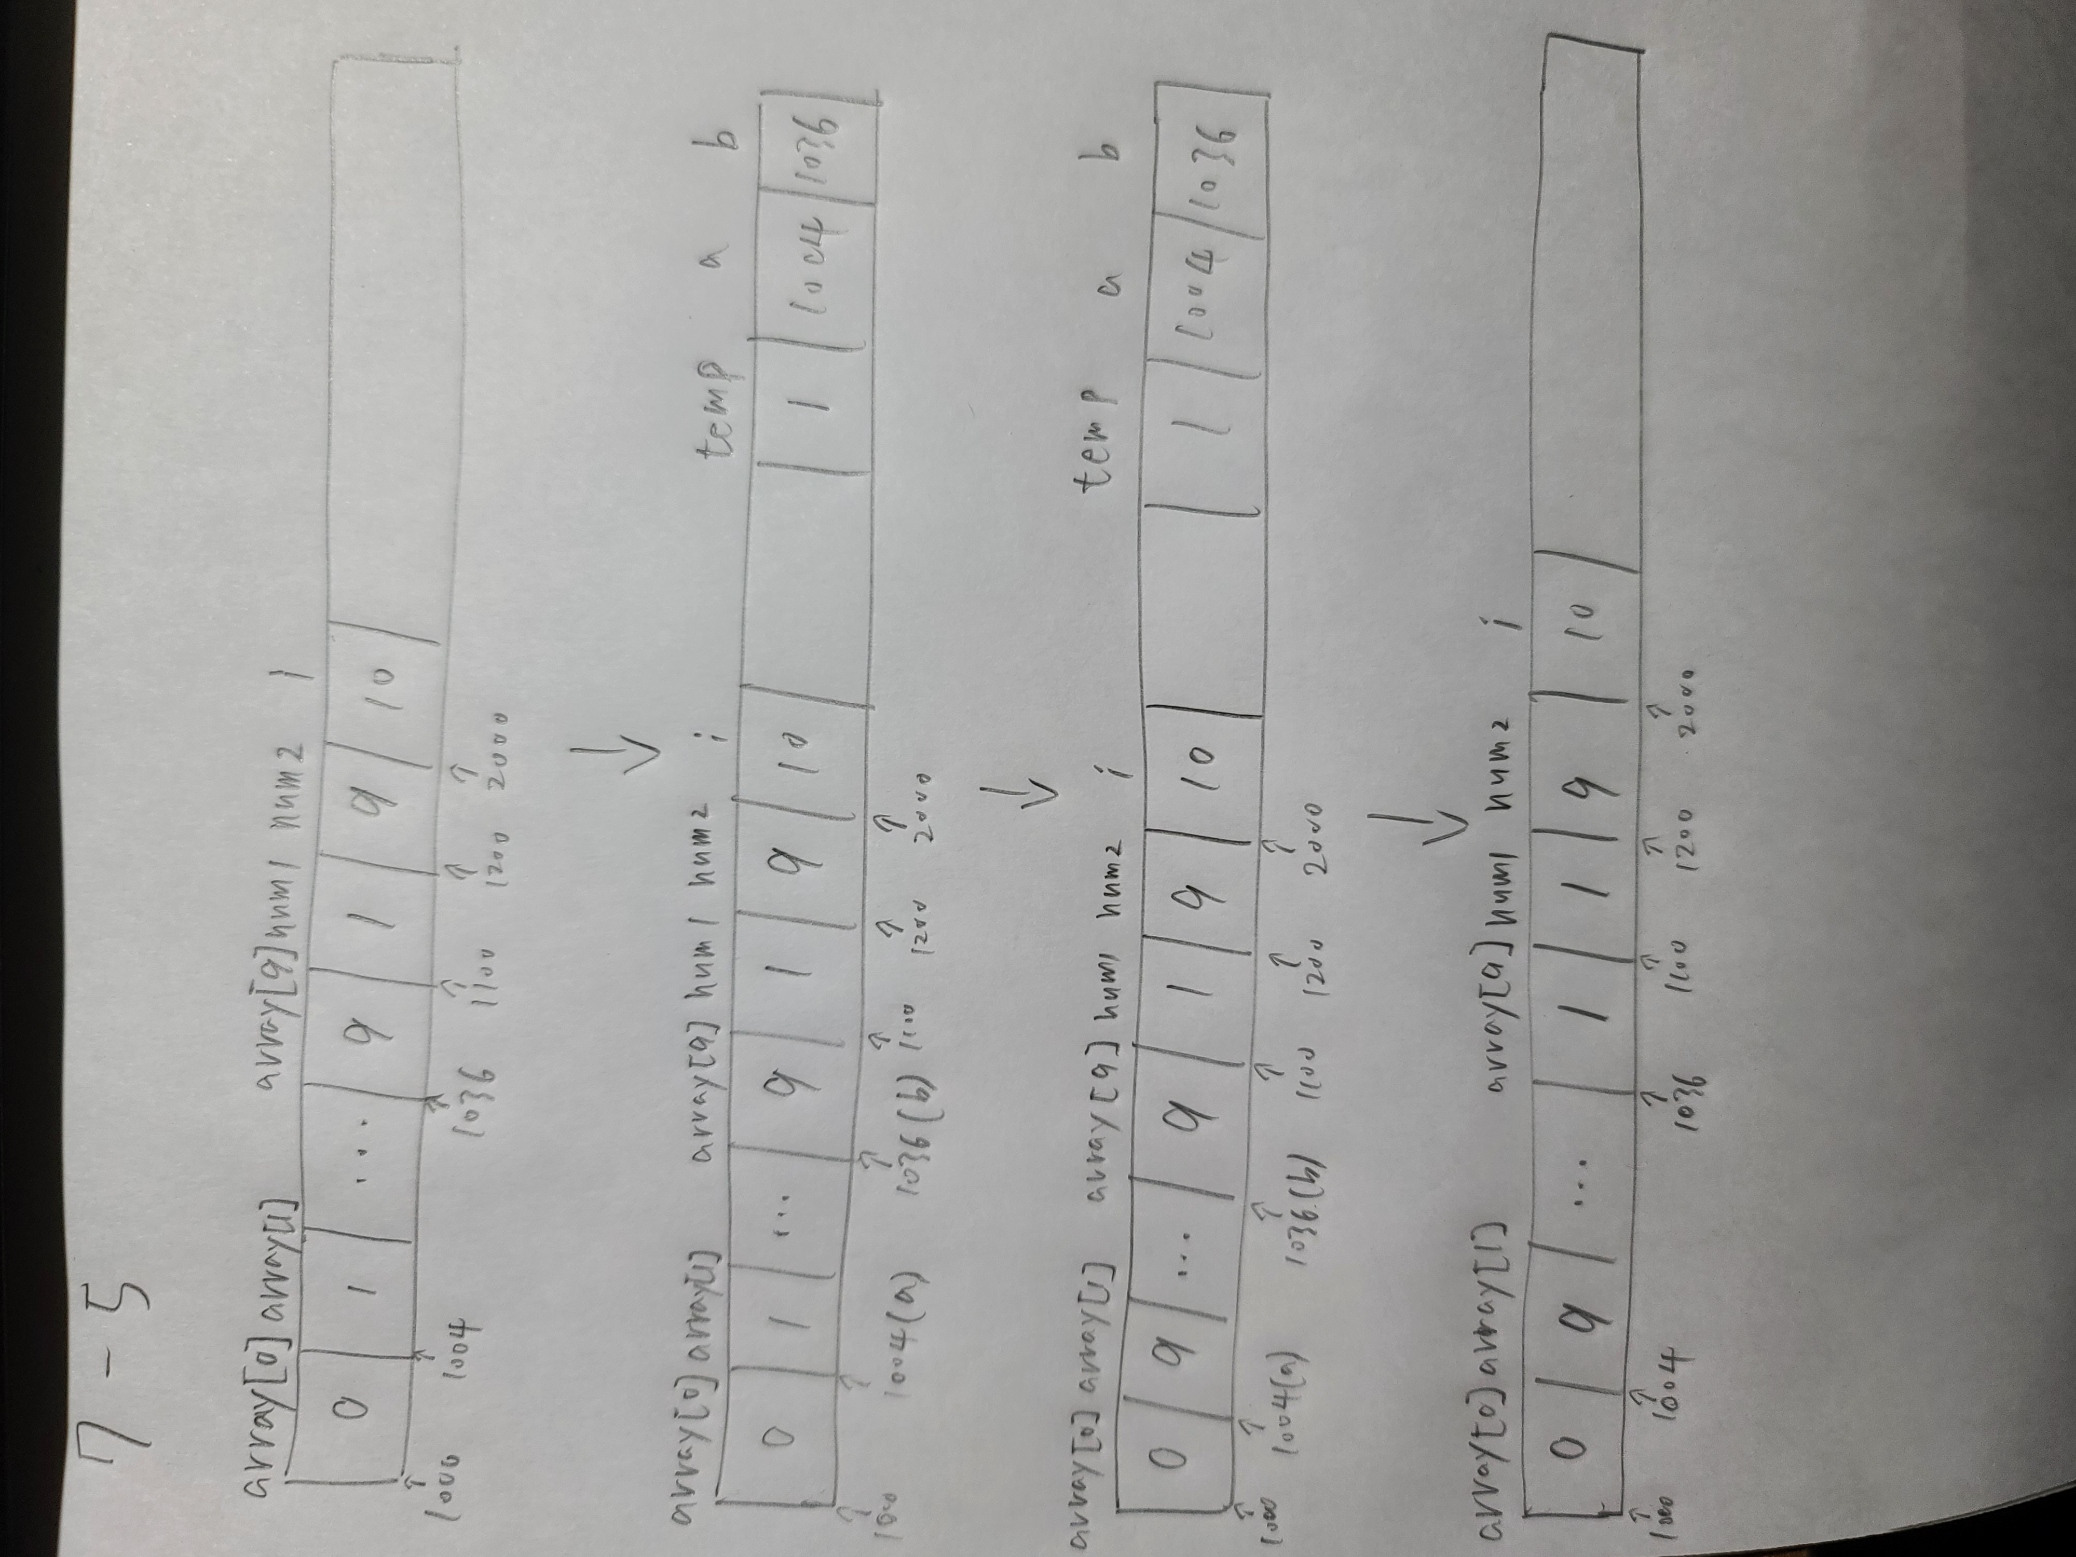 7-5
array[0] array[1] array[9] num1 num2 i
0 1 ... 9 1 9 10
1000 1004 1036 1100 1200 2000
array[0] array[1] array[9] num1 num2 i temp a b
0 1 ... 9 1 9 10 1 1004 1036
1000 1004(a) 1036(b) 1100 1200 2000
array[0] array[1] array[9] num1 num2 i temp a b
0 9 ... 9 1 9 10 1 1004 1036
1000 1004(a) 1036(b) 1100 1200 2000
array[0] array[1] array[9] num1 num2 i
0 9 ... 1 1 9 10
1000 1004 1036 1100 1200 2000